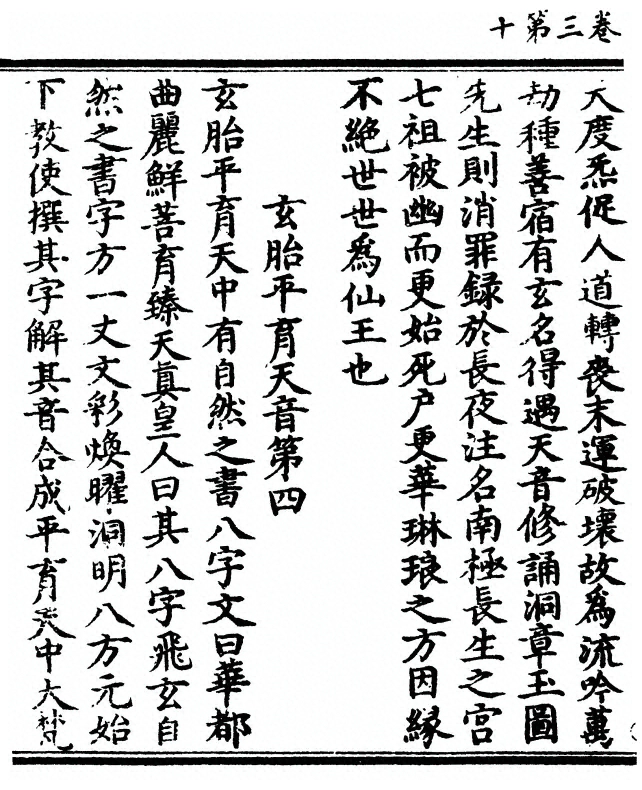 卷三第十
天度炁促人道轉喪末運破壞故為流吟萬
劫種善宿有玄名得遇天音修誦洞章玉圖
先生則消罪録於長夜注名南極長生之宮
七祖被幽而更始死户更華琳琅之方因緣
不絶世世為仙王也
玄胎平育天音第四
玄胎平育天中有自然之書八字文曰華都
曲麗鮮菩育臻天真皇人曰其八字飛玄自
然之書字方一丈文彩煥曜洞明八方元始
下教使撰其字解其音合成平育天中大梵